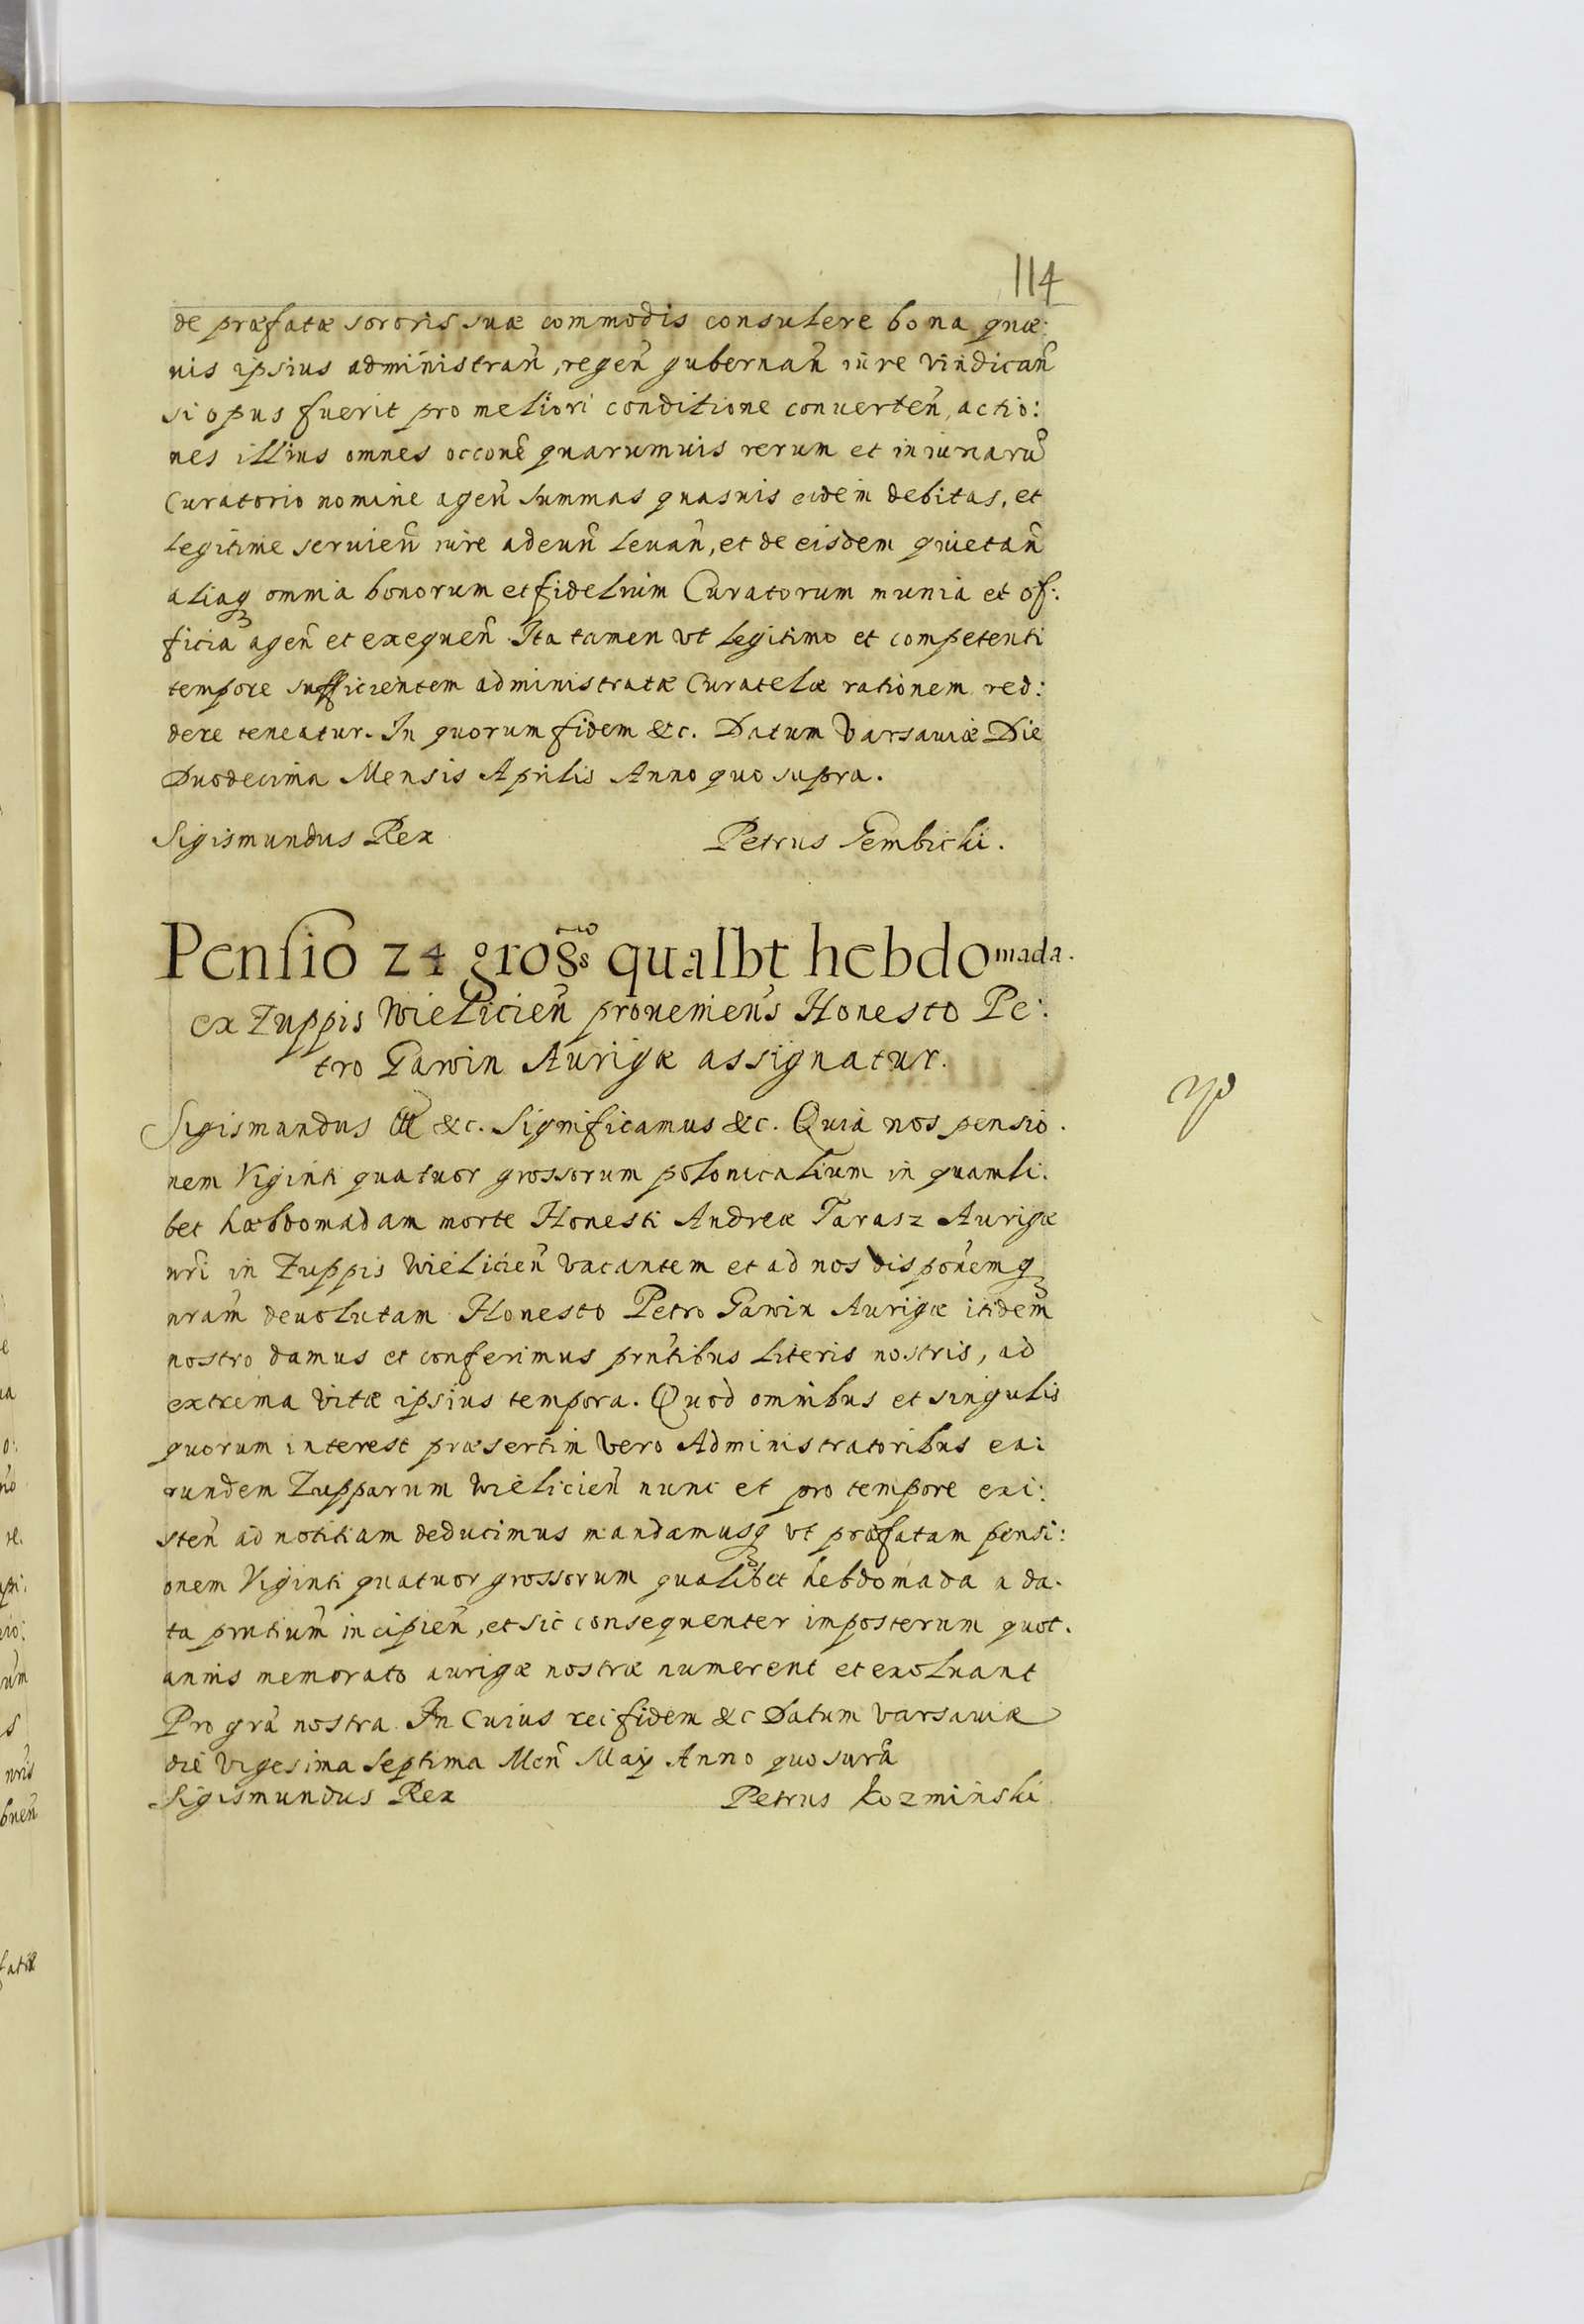 114
de præfatæ sororis suæ commodis consulere bona quæ:
uis ipsius administrañ, regeñ gubernañ iure vindicañ
si opus fuerit pro meliori conditione conuerteñ, actio:
nes illius omnes occoñe quarumuis rerum et iniuriarũ
Curatorio nomine ageñ summas quasuis eidem debitas, et
legitime seruieñ iure adeuñ leuañ, et de eisdem quietañ
aliaq omnia bonorum et fidelium Curatorum munia et of:
ficia ageñ et exequeñ. Ita tamen vt legitimo et competenti
tempore sufficientem administratæ Curatelæ rationem red:
dere teneatur. In quorum fidem &c. Datum Varsauiæ Die
Duodecima Mensis Aprilis Anno quo supra.
Sigismundus Rex Petrus Gembicki.
Pensio 24 gross qualbt hebdomada.
ex Zuppis Wielicieñ proueniens Honesto Pe:
tro Gawin Aurigæ assignatur.
Sigismundus &c. Significamus &c. Quia nos pensio.
nem Viginti quatuor grossorum polonicalium in quamli:
bet hæbdomadam morte Honesti Andreæ Tarasz Aurigæ
nri in Zuppis Wielicieñ vacantem et ad nos disponemq
nram deuolutam Honesto Petro Gawin Aurigæ itidem
nostro damus et conferimus prntibus literis nostris, ad
extrema vitæ ipsius tempora. Quod omnibus et singulis
quorum interest præsertim vero Administratoribus ea:
rundem Zupparum Wielicieñ nunc et pro tempore exi:
steñ ad notitiam deducimus mandamusq vt præfatam pensi:
onem Viginti quatuor grossorum qualibet hebdomada a da.
ta prntium incipieñ, et sic consequenter imposterum quot.
annis memorato aurigæ nostræ numerent et exoluant
Pro gra nostra. In Cuius rei fidem &c Datum Varsauiæ
die vigesima septima Meñ Maij Anno quo supra
Sigismundus Rex Petrus Kozminski